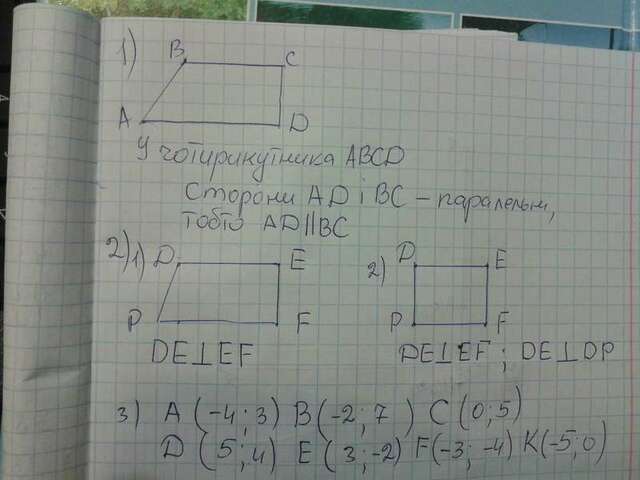 1) B C
A D
У чотирикутника ABCD
Сторони AD і BC – паралельні,
тобто AD||BC
2) 1) D E 2) D E
P F P F
DE⊥EF DE⊥EF ; DE⊥DP
3) A (-4; 3) B (-2; 7) C (0; 5)
D (5; 4) E (3; -2) F (-3; -4) K (-5; 0)